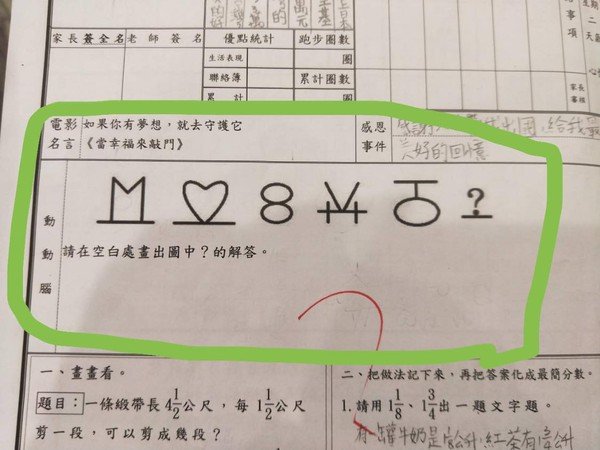 家長簽全名 老師簽名 優點統計 跑步圈數
生活表現 圈
聯絡簿 累計圈數
累計 圈
事項
家長
審核
電影 如果你有夢想，就去守護它
名言 《當幸福來敲門》
感恩
事件
美好的回憶
動動腦
?
請在空白處畫出圖中？的解答。
一、畫畫看。
題目：一條緞帶長4 1/2公尺，每1 1/2公尺
剪一段，可以剪成幾段？
二、把做法記下來，再把答案化成最簡分數。
1.請用1 1/8、1 3/4出一題文字題。